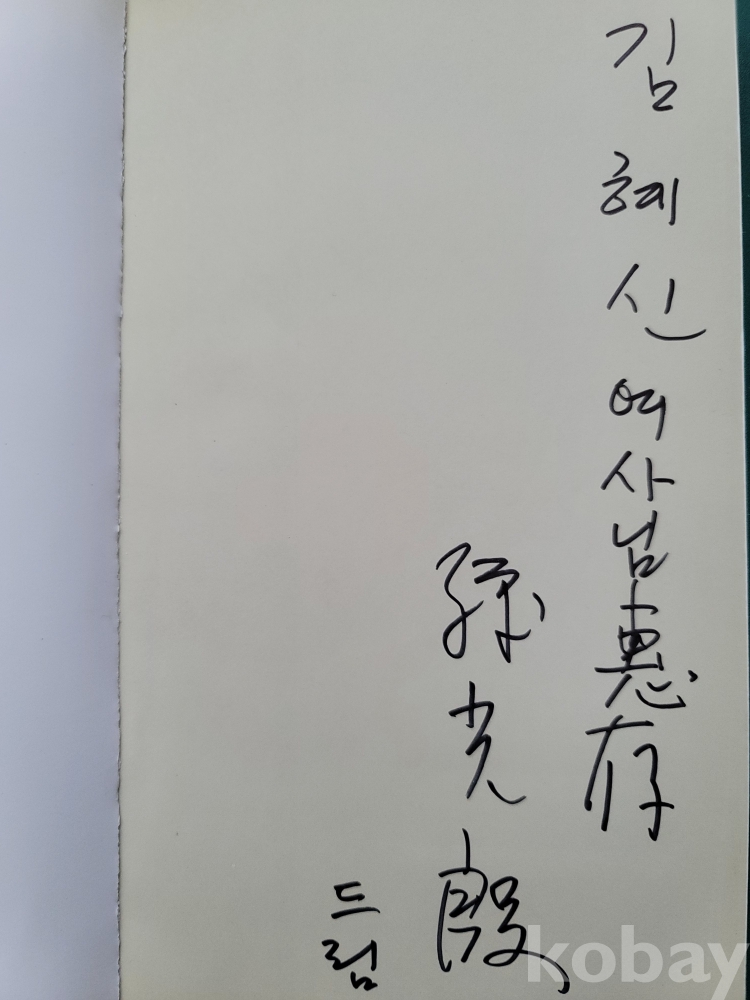 김혜신 여사님 惠存
孫光殷
드림
kobay